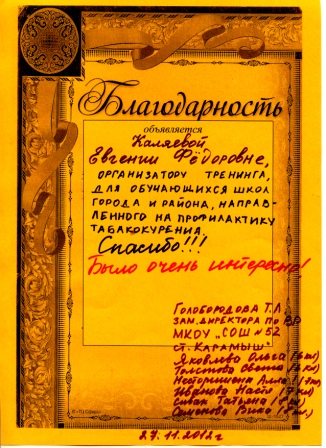 Благодарность
объявляется
Каляевой
Евгении Фёдоровне,
организатору тренинга,
для обучающихся школ
города и района, направ-
ленного на профилактику
табакокурения.
Спасибо!!!
Было очень интересно!
Голобородова Т.Л
зам. директора по ВР
МКОУ „СОШ №52
ст. Карамыш"
Яковлева Ольга
Толстова Света
Алла
Иванова Настя (7 кл)
Татьяна
Семенова Вика
27.11.2012г